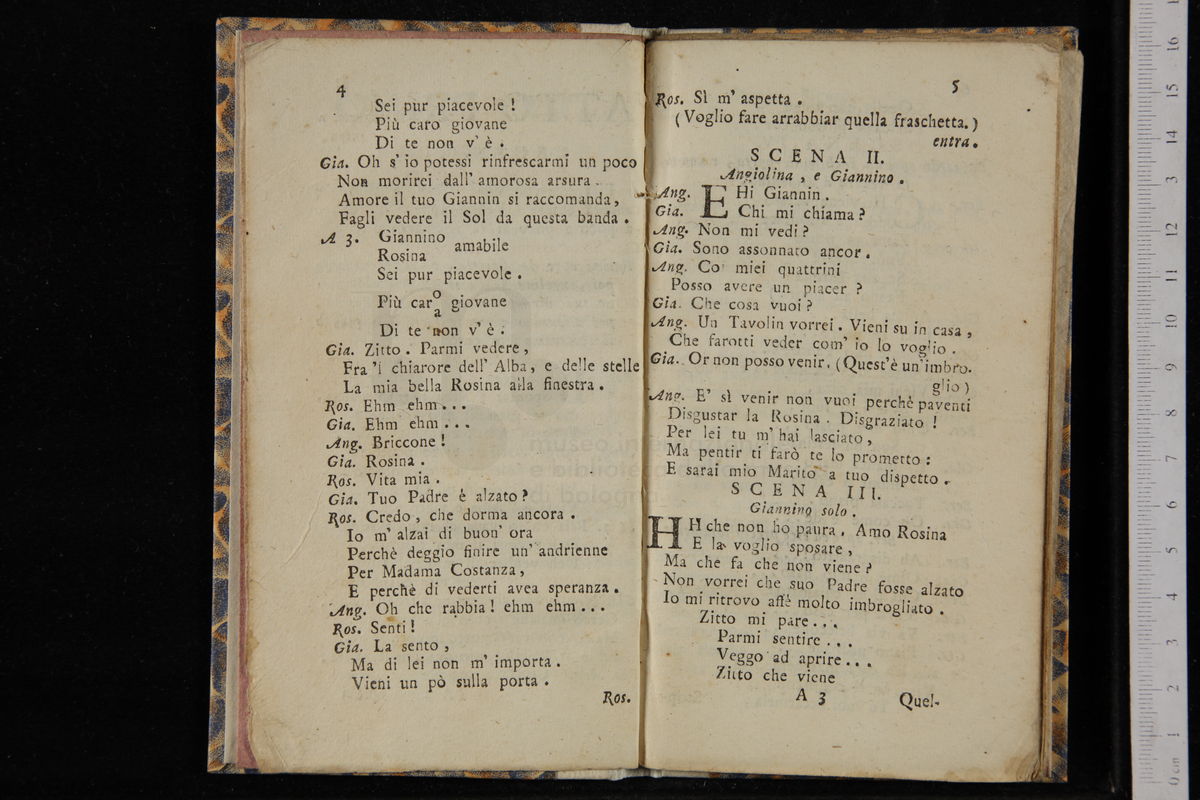 4
Sei pur piacevole !
Più caro giovane
Di te non v' è .
Gia. Oh s' io potessi rinfrescarmi un poco
Non morirei dall' amorosa arsura .
Amore il tuo Giannin si raccomanda ,
Fagli vedere il Sol da questa banda .
A 3. Giannino
Rosina amabile
Sei pur piacevole .
Più car o a giovane
Di te non v' è .
Gia. Zitto . Parmi vedere ,
Fra 'l chiarore dell' Alba, e delle stelle
La mia bella Rosina alla finestra .
Ros. Ehm ehm . . .
Gia. Ehm ehm . . .
Ang. Briccone !
Gia. Rosina .
Ros. Vita mia .
Gia. Tuo Padre è alzato ?
Ros. Credo , che dorma ancora .
Io m' alzai di buon' ora
Perchè deggio finire un' andrienne
Per Madama Costanza ,
E perchè di vederti avea speranza .
Ang. Oh che rabbia ! ehm ehm . . .
Ros. Senti !
Gia. La sento ,
Ma di lei non m' importa .
Vieni un pò sulla porta .
Ros.
5
Ros. Sì m' aspetta .
( Voglio fare arrabbiar quella fraschetta. )
entra.
SCENA II.
Angiolina , e Giannino .
Ang. EHi Giannin .
Gia. Chi mi chiama ?
Ang. Non mi vedi ?
Gia. Sono assonnato ancor .
Ang. Co' miei quattrini
Posso avere un piacer ?
Gia. Che cosa vuoi ?
Ang. Un Tavolin vorrei . Vieni su in casa ,
Che farotti veder com' io lo voglio .
Gia. Or non posso venir. ( Quest'è un' imbro-
glio )
Ang. E' sì venir non vuoi perchè paventi
Disgustar la Rosina . Disgraziato !
Per lei tu m' hai lasciato ,
Ma pentir ti farò te lo prometto :
E sarai mio Marito a tuo dispetto .
SCENA III.
Giannino solo .
HH che non ho paura . Amo Rosina
E la voglio sposare ,
Ma che fa che non viene ?
Non vorrei che suo Padre fosse alzato
Io mi ritrovo affè molto imbrogliato .
Zitto mi pare . . .
Parmi sentire . . .
Veggo ad aprire . . .
Zitto che viene
A 3
Quel-
museo in
e biblioteca
di bologna
0 cm 1 2 3 4 5 6 7 8 9 10 11 12 13 14 15 16